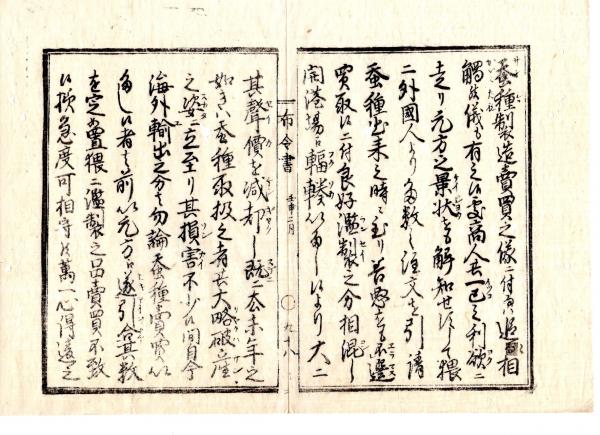 蚕種製造賣買之儀ニ付而ハ追々相
觸候儀も有之候処商人共一己之利欲ニ
走り元方之景状をも解知せすして猥
ニ外国人より多数之注文を引請
蚕種出来之時ニ至り善悪をも不選
買取候ニ付良好濫製之分相混し
開港場ニ輻輳いたし候より大ニ
布令書
壬申二月
九十八
其聲價を減却し既ニ去未年之
如きハ蚕種取扱之者共大略破産
之姿ニ立至り其損害不少候間自今
海外輸出之分ハ勿論蚕種賣買い
たし候者ハ前以元方に遂引合其数
を定め置猥ニ濫製之品賣買不致
候様急度可相守候萬一心得違之